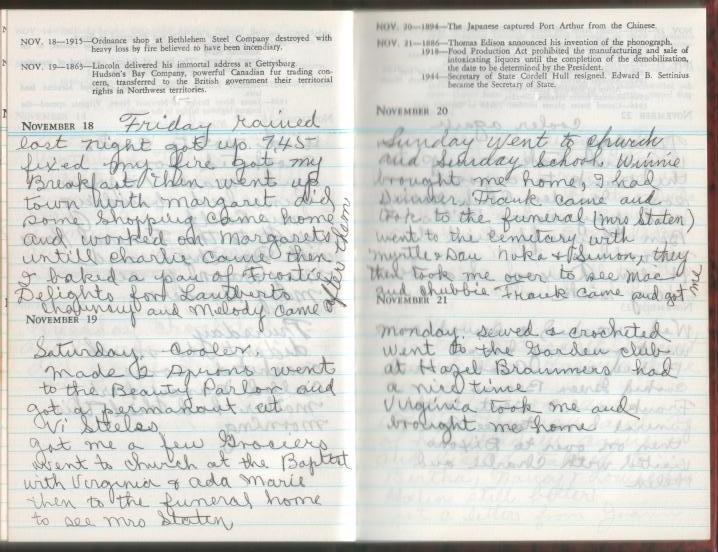 NOV. 18—1915—Ordnance shop at Bethlehem Steel Company destroyed with
heavy loss by fire believed to have been incendiary.
NOV. 19—1863—Lincoln delivered his immortal address at Gettysburg.
Hudson's Bay Company, powerful Canadian fur trading con-
cern, transferred to the British government their territorial
rights in Northwest territories.
NOVEMBER 18 Friday rained
last night got up 7,45
fixed my fire got my
Breakfast then went up
town with margaret did
some shopping came home
and worked on Margarets
untill charlie came then
I baked a pan of Frostie
Delights for Lautberts
Chaunsuy and Melody came
after them
NOVEMBER 19
Saturday, cooler,
made 2 aprons went
to the Beauty Parlor and
got a permanant at
Vi Steeles
got me a few Groceries
went to church at the Baptist
with Virginia & ada Marie
then to the funeral home
to see mrs Staten
NOV. 20—1894—The Japanese captured Port Arthur from the Chinese.
NOV. 21—1886—Thomas Edison announced his invention of the phonograph.
1918—Food Production Act prohibited the manufacturing and sale of
intoxicating liquors until the completion of the demobilization,
the date to be determined by the President.
1944—Secretary of State Cordell Hull resigned. Edward B. Settinius
became the Secretary of State.
NOVEMBER 20
Sunday went to church
and Sunday School, Winnie
brought me home, I had
Dinner. Frank came and
took to the funeral (mrs Staten)
went to the cemetary with
myrtle & Dau Noka & Simon, they
then took me over to see Mae
and Chubbie Frank came and got me
NOVEMBER 21
monday, sewed & crocheted
went to the Garden club
at Hazel Brammers had
a nice time.
Virginia took me and
brought me home